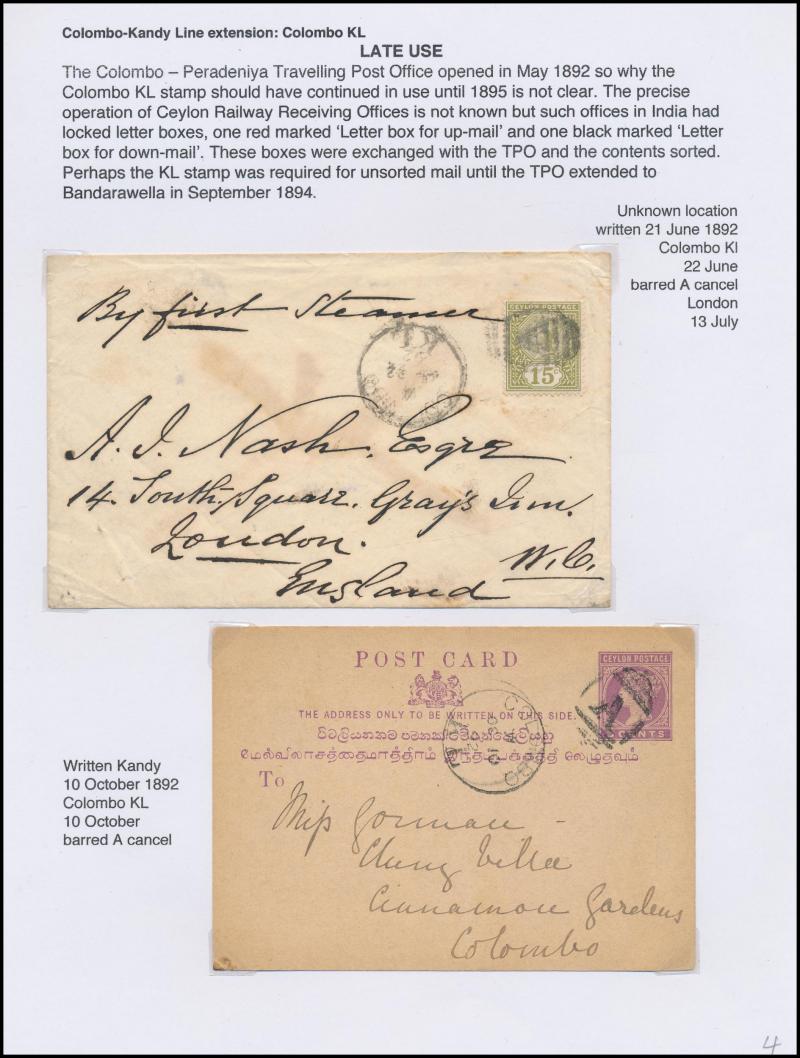 Colombo-Kandy Line extension: Colombo KL
LATE USE
The Colombo – Peradeniya Travelling Post Office opened in May 1892 so why the
Colombo KL stamp should have continued in use until 1895 is not clear. The precise
operation of Ceylon Railway Receiving Offices is not known but such offices in India had
locked letter boxes, one red marked ‘Letter box for up-mail’ and one black marked ‘Letter
box for down-mail’. These boxes were exchanged with the TPO and the contents sorted.
Perhaps the KL stamp was required for unsorted mail until the TPO extended to
Bandarawella in September 1894.
Unknown location
written 21 June 1892
Colombo Kl
22 June
barred A cancel
London
13 July
By first Steamer
CEYLON POSTAGE
15c
A. J. Nash. Esqre
14. South Square. Gray's Inn.
London.
W.C.
England
POST CARD
CEYLON POSTAGE
THE ADDRESS ONLY TO BE WRITTEN ON THIS SIDE.
CENTS
COLOMBO
மேல்விலாசத்தைமாத்திரம் இந்தப்பக்கத்தி லெழுதவும்
To
Miss Gorman
Villa
Cinnamon Gardens
Colombo
Written Kandy
10 October 1892
Colombo KL
10 October
barred A cancel
4